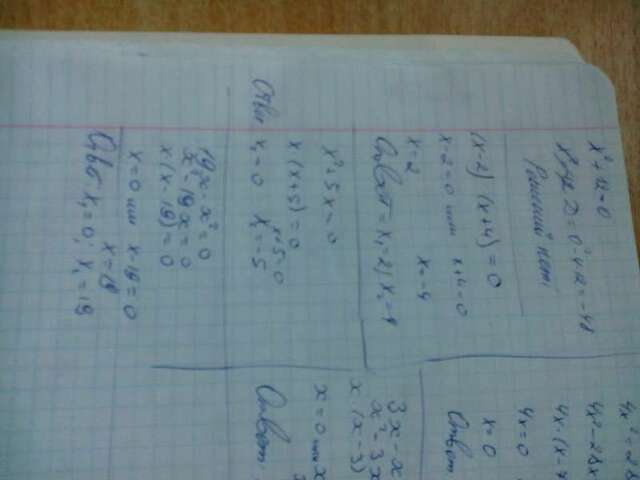 x²+12=0
D=0²-4·12=-48
Решений нет.
(x-2)(x+4)=0
x-2=0 или x+4=0
x=2 x=-4
Ответ: x₁=2; x₂=-4
x²+5x=0
x(x+5)=0
x+5=0
Ответ: x₁=0 x₂=-5
19x-x²=0
x²-19x=0
x(x-19)=0
x=0 или x-19=0
x=19
Ответ: x₁=0; x₂=19
4x²=28
4x²-28x
4x(x-7
4x=0
x=0
Ответ
3x-x
x²-3x
x(x-3)
x=0 или x
Ответ